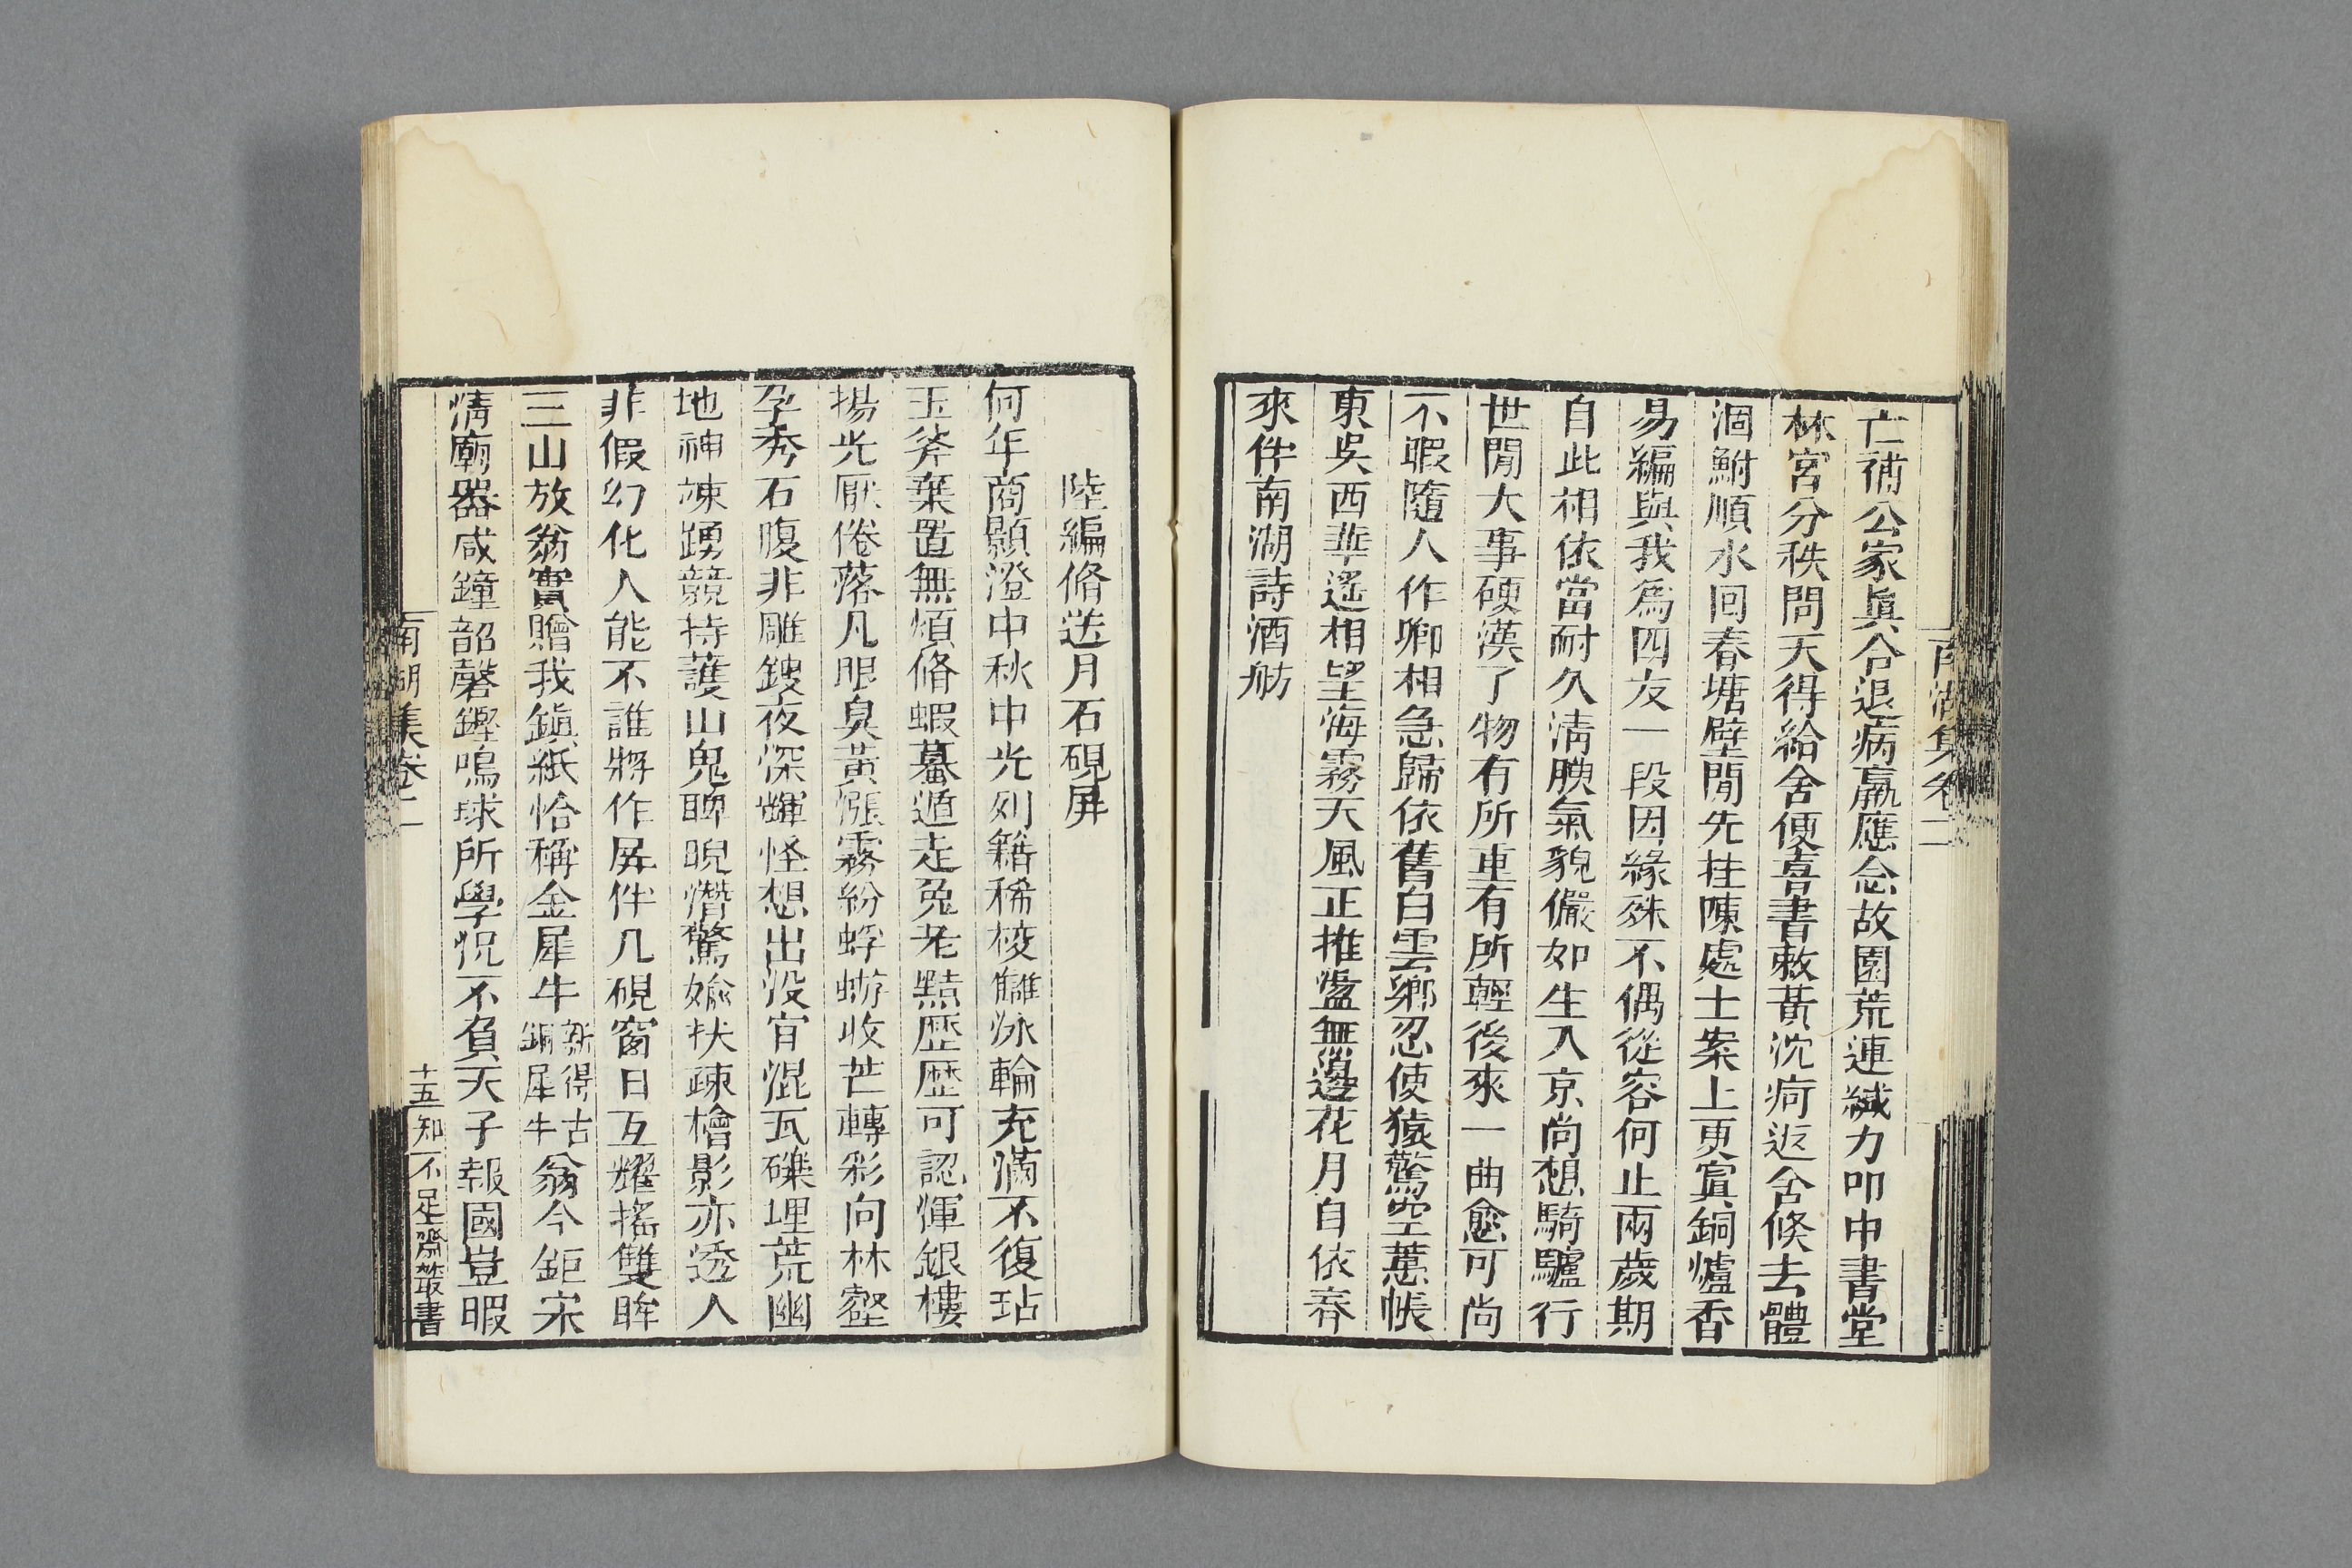 亡補公家眞合退病羸應念故園荒連緘力叩中書堂
林宮分秩問天得給舍便喜書敕黃沈痾返舍倏去體
涸鮒順水回春塘壁閒先挂陳處士案上更寘銅爐香
易編與我爲四友一段因緣殊不偶從容何止兩歲期
自此相依當耐久淸腴氣貌儼如生入京尚想騎驢行
世閒大事硬漢了物有所重有所輕後來一曲愈可尚
不暇隨人作卿相急歸依舊白雲鄉忍使猿驚空蕙帳
東吳西華遙相望海霧天風正推盪無邊花月自依春
來伴南湖詩酒舫
南湖集卷二
陸編脩送月石硯屏
何年商顥澄中秋中光列籍稀棱讎泳輪充滿不復玷
玉斧棄置無煩脩蝦蟇遁走兔老黠歷歷可認渾銀樓
揚光厭倦落凡眼臭黃漲霧紛蜉蝣收芒轉彩向林壑
孕秀石腹非雕鎪夜深燀怪想出沒宵混瓦礫埋荒幽
地神竦踴競持護山鬼睥睨潛驚媮扶疎檜影亦透人
非假幻化人能不誰將作屏伴几硯窗日互耀搖雙眸
三山放翁實贈我鎭紙恰稱金犀牛新得古銅犀牛翁今鉅宋
淸廟器咸鐘韶磬鏗鳴球所學怳不負天子報國豈暇
南湖集卷二
十五
知不足齋叢書